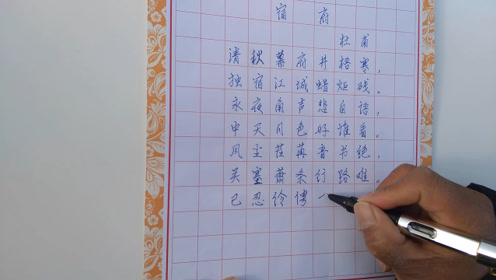 宿府
杜甫
清秋幕府井梧寒，
独宿江城蜡炬残。
永夜角声悲自语，
中天月色好谁看。
风尘荏苒音书绝，
关塞萧条行路难。
已忍伶俜一